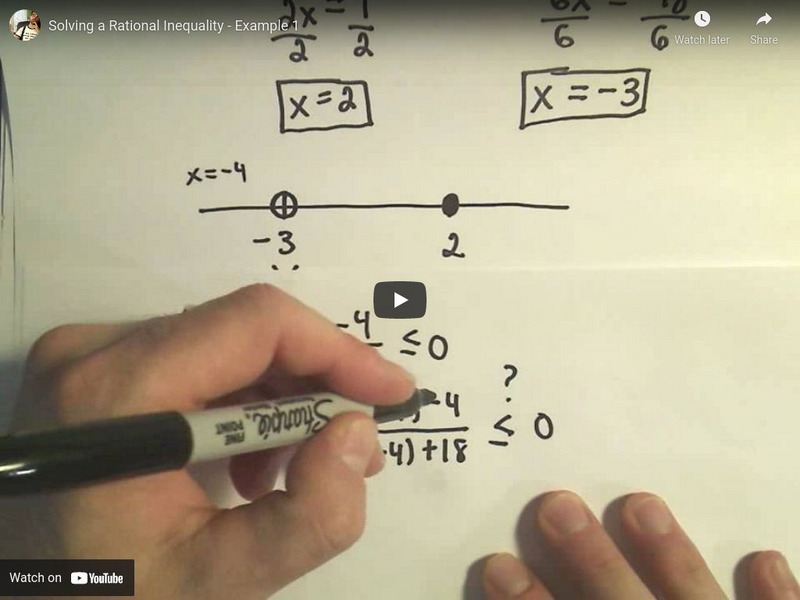 Solving a Rational Inequality - Example 1
Watch later
Share
2x = 1
2 2
6
6
x = 2
x = -3
x=-4
-3
2
-4
≤ 0
?
-4 ≤ 0
-4)+18
Sharpie.
FINE
POINT
Watch on YouTube